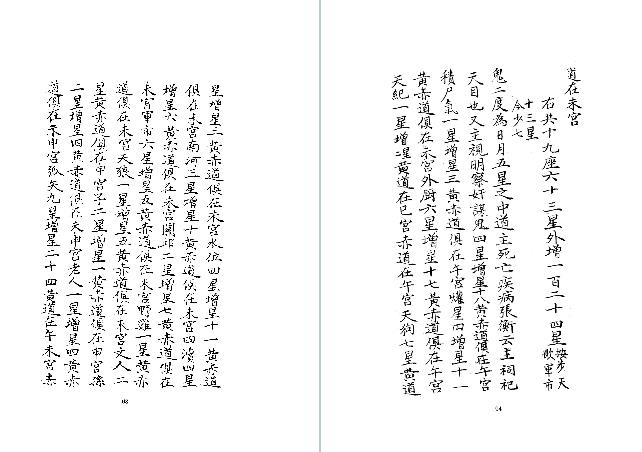 星增星三黄赤道俱在未宮水位四星增星十一黄赤道
俱在未宮南河三星增星十黄赤道俱在未宮四瀆四星
增星六黄赤道俱在未宮闕邱二星增星七黄赤道俱在
未宮軍市六星增星五黄赤道俱在未宮野雞一星黄赤
道俱在未宮天狼一星增星五黄赤道俱在未宮丈人二
星黄赤道俱在申宮子二星增星一黄赤道俱在申宮孫
二星增星四黄赤道俱在未申宮老人一星增星四黄赤
道俱在未申宮弧矢九星增星二十四黄道在午未宮赤
道在未宮
右共十九座六十三星外增一百二十四星按步天歌軍市
十三星今少七
鬼二度為日月五星之中道主死亡疾病張衡云主祠祀
天目也又主視明察奸謀鬼四星增星十八黄赤道俱在午宮
積尸氣一星增星三黄赤道俱在午宮爟星四增星十一
黄赤道俱在未宮外厨六星增星十七黄赤道俱在午宮
天紀一星增星黄道在巳宮赤道在午宮天狗七星黄道